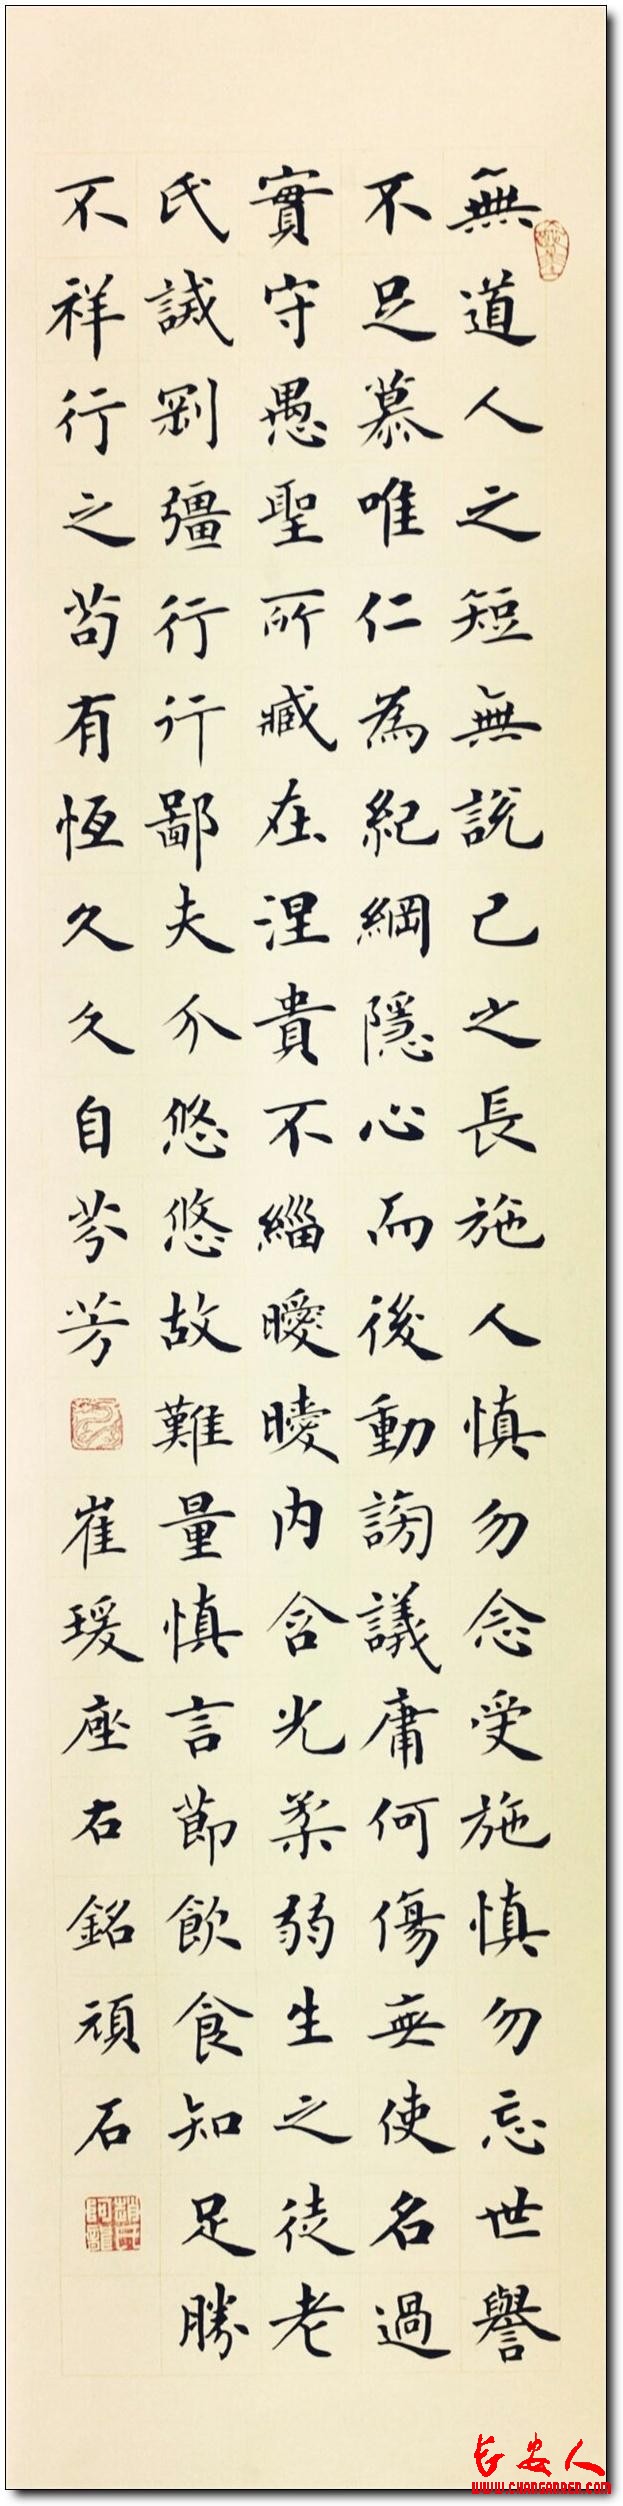 無道人之短無說己之長施人慎勿念受施慎勿忘世譽
不足慕唯仁為紀綱隱心而後動謗議庸何傷無使名過
實守愚聖所臧在涅貴不緇曖曖內含光柔弱生之徒老
氏誡剛彊行行鄙夫介悠悠故難量慎言節飲食知足勝
不祥行之苟有恆久久自芬芳 崔瑗座右銘頑石
长安人
WWW.CHANGANREN.COM